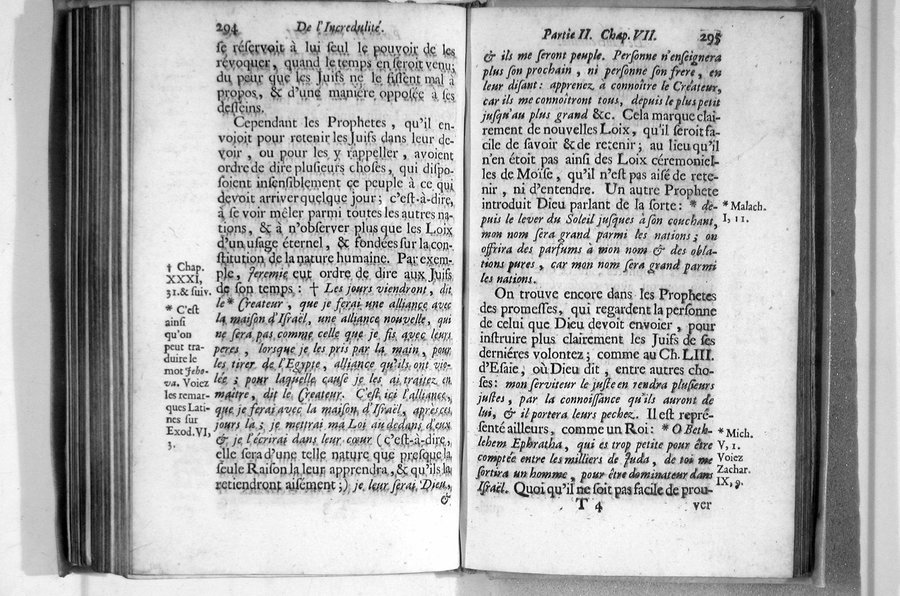 294 De l'Incredulité.
se réservoit à lui seul le pouvoir de les
révoquer, quand le tems en seroit venu;
du peur que les Juifs ne le fissent mal à
propos, & d'une maniére opposée à ses
desseins.
Cependant les Prophetes, qu'il en-
voioit pour retenir les Juifs dans leur de-
voir, ou pour les y rappeller, avoient
ordre de dire plusieurs choses, qui dispo-
soient insensiblement ce peuple à ce qui
devoit arriver quelque jour; c'est-à-dire,
à se voir mêler parmi toutes les autres na-
tions, & à n'observer plus que les Loix
d'un usage éternel, & fondées sur la con-
stitution de la nature humaine. Par exem-
ple, Jeremie eut ordre de dire aux Juifs
de son temps: † Les jours viendront, dit
le * Createur, que je ferai une alliance avec
la maison d'Israël, une alliance nouvelle, qui
ne sera pas comme celle que je fis avec leurs
peres, lorsque je les pris par la main, pour
les tirer de l'Egypte, alliance qu'ils ont vio-
lée; pour laquelle cause je les ai traitez en
maître, dit le Createur. C'est ici l'alliance,
que je ferai avec la maison d'Israël, après ces
jours là; je mettrai ma Loi au dedans d'eux
& je l'écrirai dans leur cœur (c'est-à-dire,
elle sera d'une telle nature que presque la
seule Raison la leur apprendra, & qu'ils la
retiendront aisément;) je leur serai Dieu,
&
† Chap.
XXXI,
31.& suiv.
* C'est
ainsi
qu'on
peut tra-
duire le
mot Jeho-
va. Voiez
les remar-
ques Lati-
nes sur
Exod.VI,
3.
Partie II. Chap. VII. 295
& ils me seront peuple. Personne n'enseignera
plus son prochain, ni personne son frere, en
leur disant: apprenez a connoître le Créateur,
car ils me connoîtront tous, depuis le plus petit
jusqu'au plus grand &c. Cela marque clai-
rement de nouvelles Loix, qu'il seroit fa-
cile de savoir & de retenir; au lieu qu'il
n'en étoit pas ainsi des Loix céremoniel-
les de Moïse, qu'il n'est pas aisé de rete-
nir, ni d'entendre. Un autre Prophete
introduit Dieu parlant de la sorte: * de-
puis le lever du Soleil jusques à son couchant,
mon nom sera grand parmi les nations; on
offrira des parfums à mon nom & des obla-
tions pures, car mon nom sera grand parmi
les nations.
On trouve encore dans les Prophetes
des promesses, qui regardent la personne
de celui que Dieu devoit envoier, pour
instruire plus clairement les Juifs de ses
derniéres volontez; comme au Ch. LIII.
d'Esaïe, où Dieu dit, entre autres cho-
ses: mon serviteur le juste en rendra plusieurs
justes, par la connoissance qu'ils auront de
lui, & il portera leurs pechez. Il est repré-
senté ailleurs, comme un Roi: * O Beth-
lehem Ephratha, qui és trop petite pour être
comptée entre les milliers de Juda, de toi me
sortira un homme, pour être dominateur dans
Israël. Quoi qu'il ne soit pas facile de prou-
T 4 ver
* Malach.
I, 11.
* Mich.
V, 1.
Voiez
Zachar.
IX, 9.